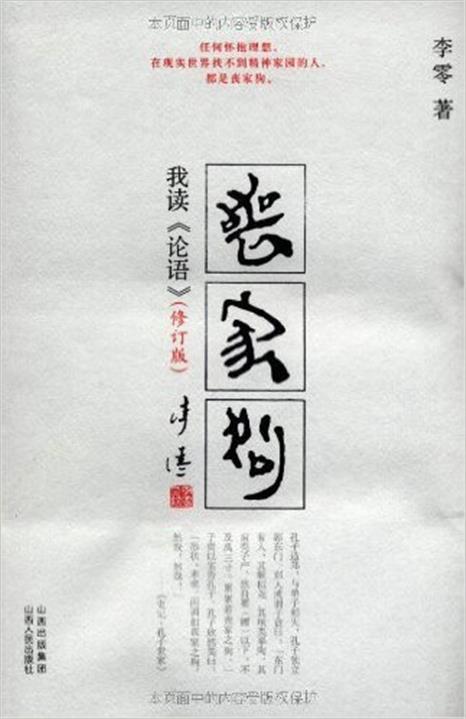 本页面中的内容受版权保护
任何怀抱理想，
在现实世界找不到精神家园的人，
都是丧家狗。
李零 著
丧家狗
我读《论语》(修订版)
李零
孔子适郑，与弟子相失，孔子独立
郭东门。郑人或谓子贡曰：“东门
有人，其颡似尧，其项类皋陶，其
肩类子产，然自要（腰）以下，不
及禹三寸，累累若丧家之狗。”
子贡以实告孔子。孔子欣然笑曰：
“形状，末也。而谓似丧家之狗，
然哉！然哉！”
——《史记·孔子世家》
山西出版集团
山西人民出版社
本页面中的内容受版权保护